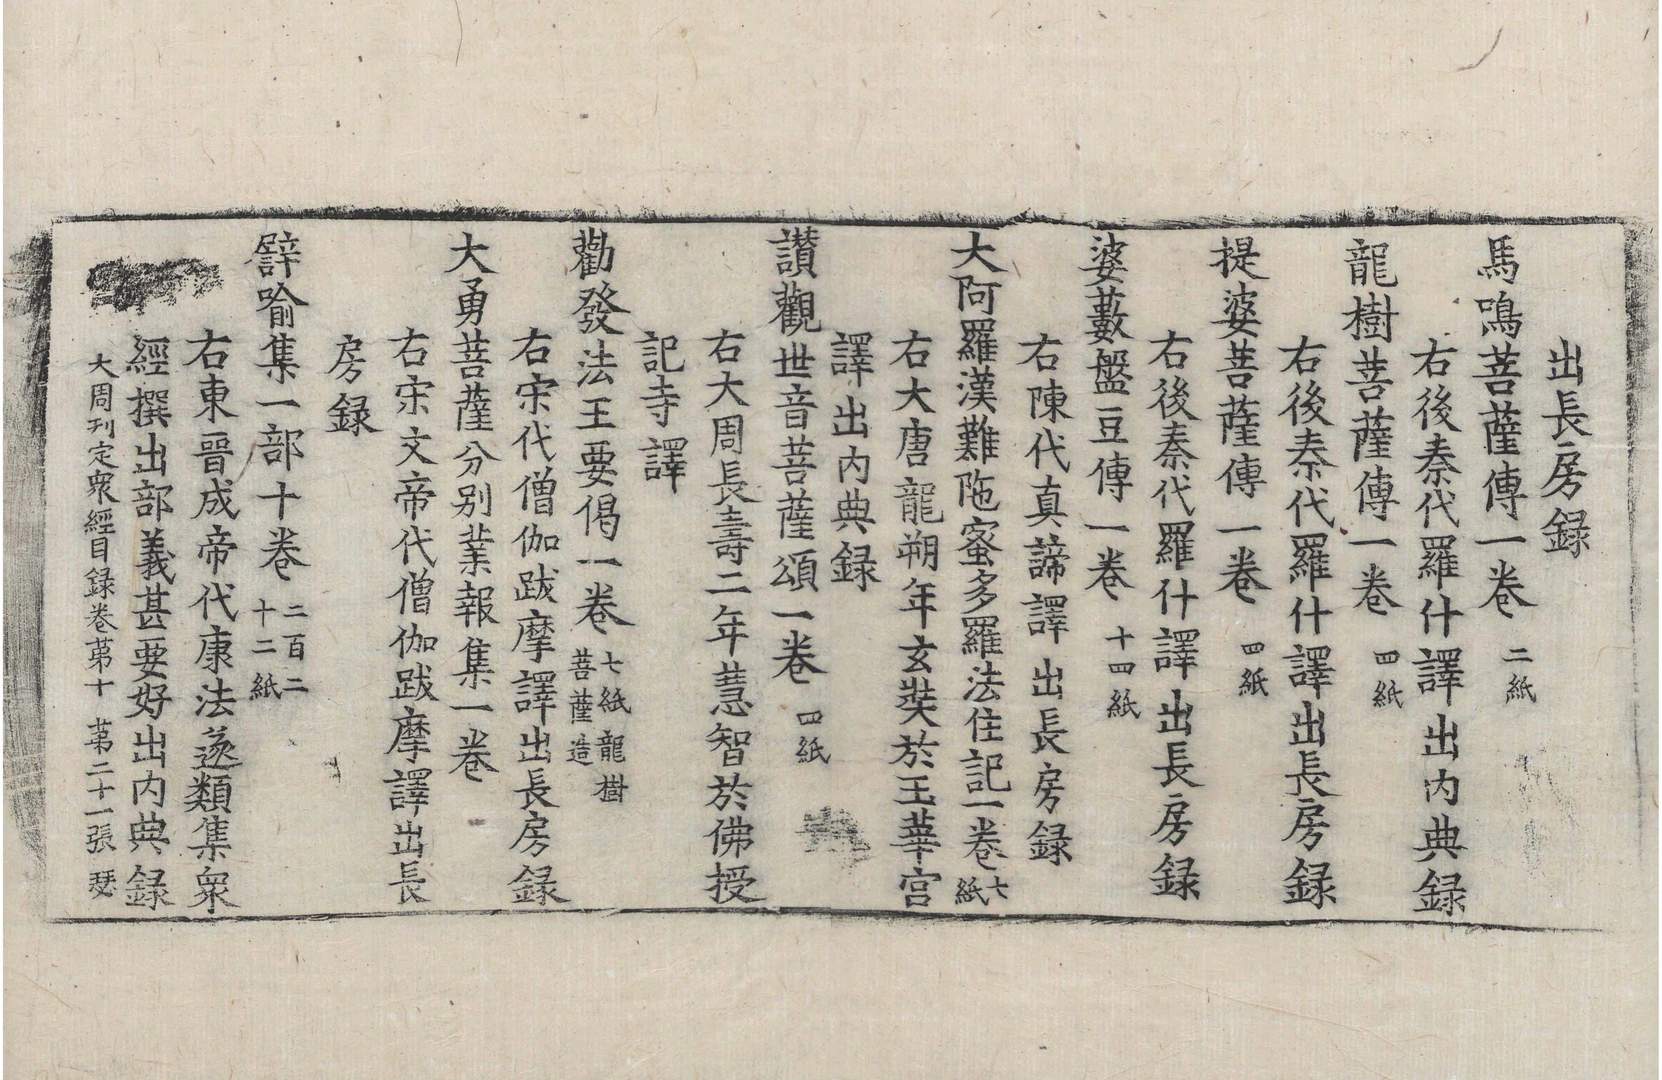 出長房録
馬鳴菩薩傳一卷 二紙
右後秦代羅什譯出内典録
龍樹菩薩傳一卷 四紙
右後秦代羅什譯出長房録
提婆菩薩傳一卷 四紙
右後秦代羅什譯出長房録
婆藪盤豆傳一卷 十四紙
右陳代真諦譯出長房録
大阿羅漢難陁蜜多羅法住記一卷 七紙
右大唐龍朔年玄奘於玉華宮
譯出内典録
讃觀世音菩薩頌一卷 四紙
右大周長壽二年慧智於佛授
記寺譯
勸發法王要偈一卷 七紙龍樹菩薩造
右宋代僧伽跋摩譯出長房録
大勇菩薩分别業報集一卷
右宋文帝代僧伽跋摩譯出長
房録
辟喻集一部十卷 二百二十二紙
右東晉成帝代康法邃類集衆
經撰出部義甚要好出内典録
大周刊定衆經目録卷第十 第二十一張 瑟